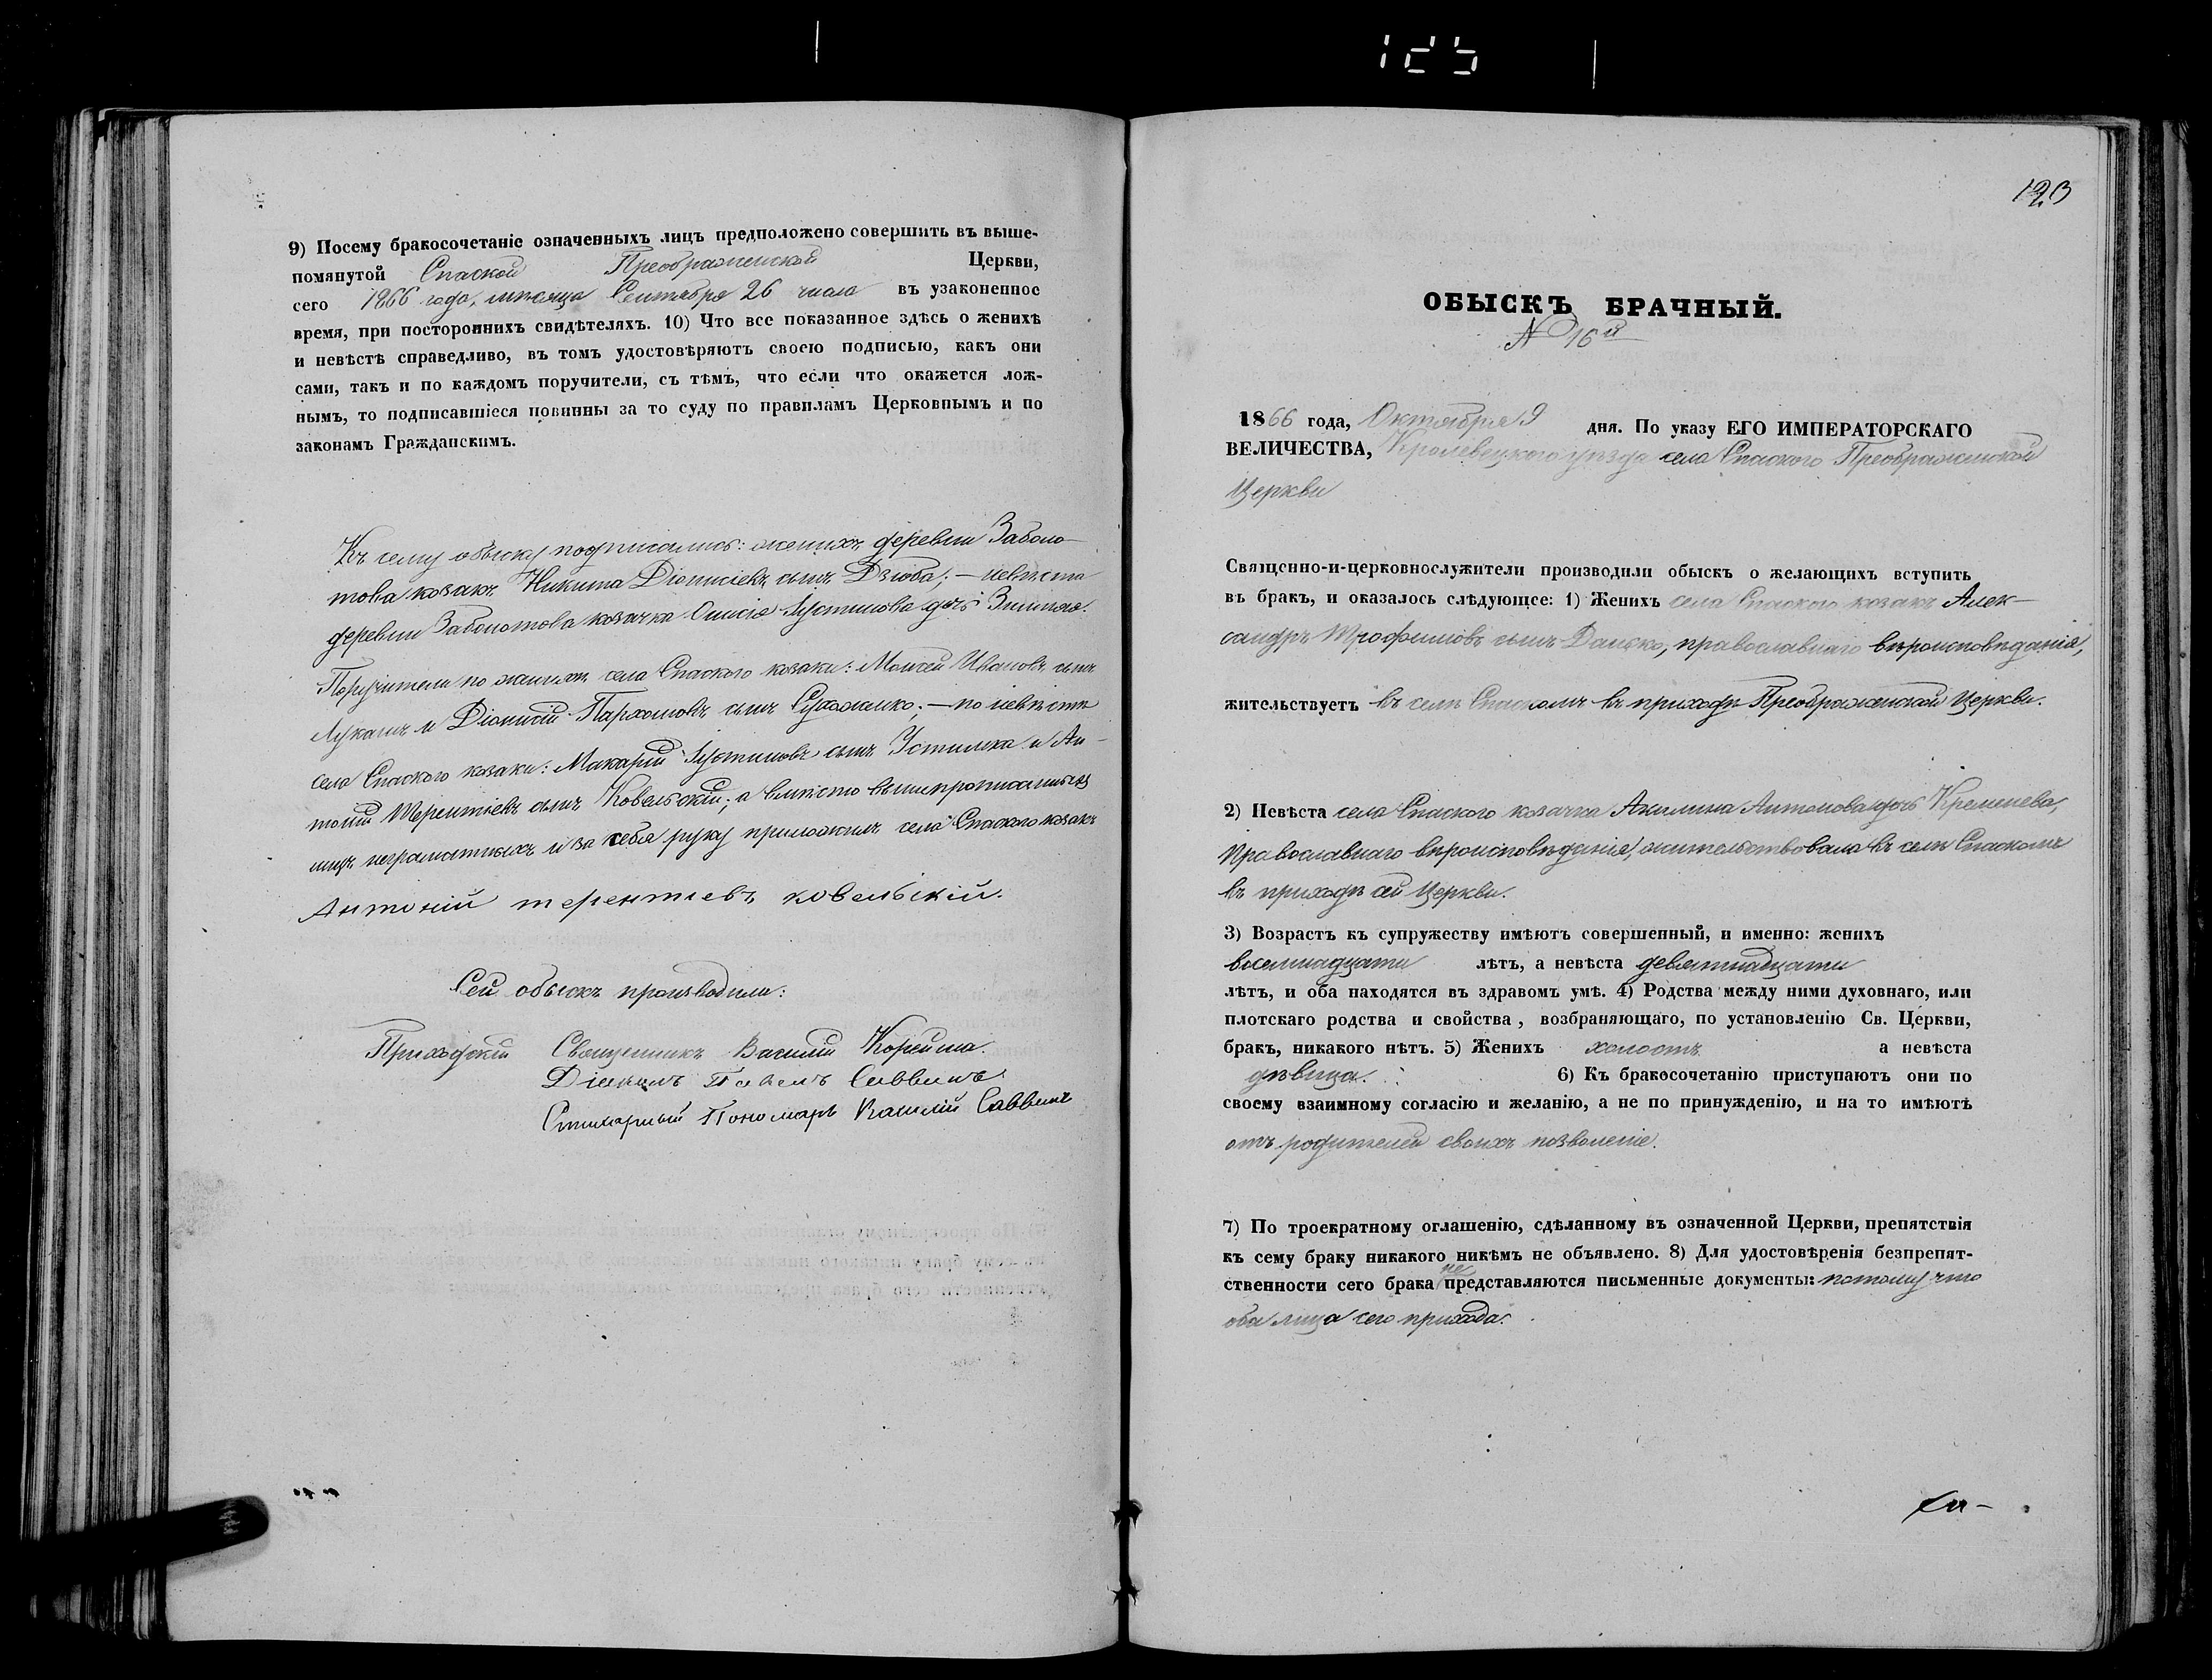 9) Посему бракосочетаніе означенныхъ лицъ предположено совершить въ выше-
помянутой Спаской Преображенской Церкви,
сего 1866 года, мѣсяца Сентября 26 числа въ узаконенное
время, при постороннихъ свидѣтеляхъ. 10) Что все показанное здѣсь о женихѣ
и невѣстѣ справедливо, въ томъ удостовѣряютъ своею подписью, какъ они
сами, такъ и по каждомъ поручители, съ тѣмъ, что если что окажется лож-
нымъ, то подписавшіеся повинны за то суду по правиламъ Церковнымъ и по
законамъ Гражданскимъ.
Къ сему обыску подписались: женихъ деревни Заболо-
това козакъ Никита Діонисіевъ сынъ Дзюба; — невѣста
деревни Заболотова козачка Іустинова дочь
Поручители по женихѣ села Спаского козаки: Моисей Ивановъ сынъ
Лукашъ и Діонисій Пархомовъ сынъ — по невѣстѣ
села Спаского козаки: Макарій Іустиновъ сынъ Устименко и Ан-
тоній Терентіевъ сынъ Ковельскій; а вмѣсто вышепрописанныхъ
лицъ неграматныхъ и за себя руку приложилъ села Спаского козакъ
Антоній терентіевъ ковельскій.
Сей обыскъ производили:
Приходскій Священникъ Василій Корейша.
Діаконъ Павелъ Саввинъ.
Стихарный Пономарь Василій Саввинъ
123
ОБЫСКЪ БРАЧНЫЙ.
N 16й
1866 года, Октября 9 дня. По указу ЕГО ИМПЕРАТОРСКАГО
ВЕЛИЧЕСТВА, Кролевецкого уѣзда села Спаского Преображенской
Церкви
Священно-и-церковнослужители производили обыскъ о желающихъ вступить
въ бракъ, и оказалось слѣдующее: 1) Женихъ села Спаского козакъ Алек-
сандръ Трофимовъ сынъ Данько, православнаго вѣроисповѣданія,
жительствуетъ въ селѣ Спаскомъ въ приходѣ Преображенской Церкви.
2) Невѣста села Спаского козачка Акилина Антонова дочь Кременева,
Православнаго вѣроисповѣданія, жительствовала въ селѣ Спаскомъ
въ приходѣ сей Церкви.
3) Возрастъ къ супружеству имѣютъ совершенный, и именно: женихъ
восемнадцати лѣтъ, а невѣста девятнадцати
лѣтъ, и оба находятся въ здравомъ умѣ. 4) Родства между ними духовнаго, или
плотскаго родства и свойства, возбраняющаго, по установленію Св. Церкви,
бракъ, никакого нѣтъ. 5) Женихъ холостъ а невѣста
дѣвица. 6) Къ бракосочетанію приступаютъ они по
своему взаимному согласію и желанію, а не по принужденію, и на то имѣютъ
отъ родителей своихъ позволеніе.
7) По троекратному оглашенію, сдѣланному въ означенной Церкви, препятствія
къ сему браку никакого никѣмъ не объявлено. 8) Для удостовѣренія безпрепят-
ственности сего брака не представляются письменные документы: потому что
оба лица сего прихода.